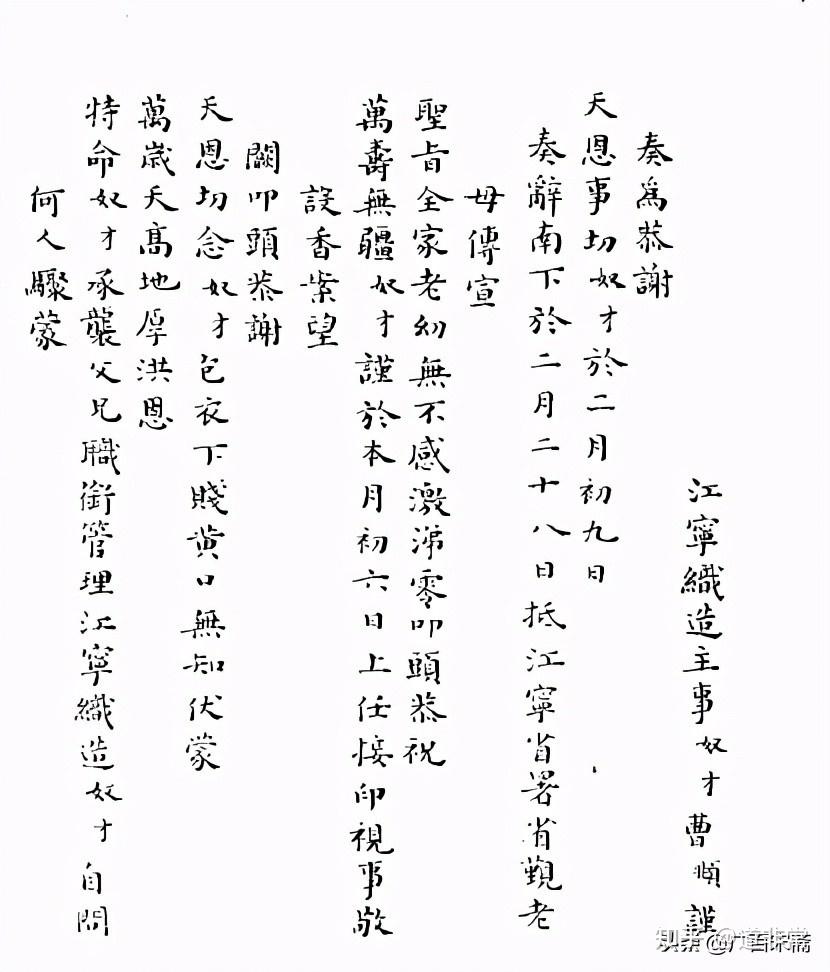 江寧織造主事奴才曹頫謹
奏爲恭謝
天恩事切奴才於二月初九日
奏辭南下於二月二十八日抵江寧省署省覲老
母傳宣
聖旨全家老幼無不感激涕零叩頭恭祝
萬壽無疆奴才謹於本月初六日上任接印視事敬
設香案望
闕叩頭恭謝
天恩切念奴才包衣下賤黃口無知伏蒙
萬歲天高地厚洪恩
特命奴才承襲父兄職銜管理江寧織造奴才自問
何人驟蒙
知乎
头条